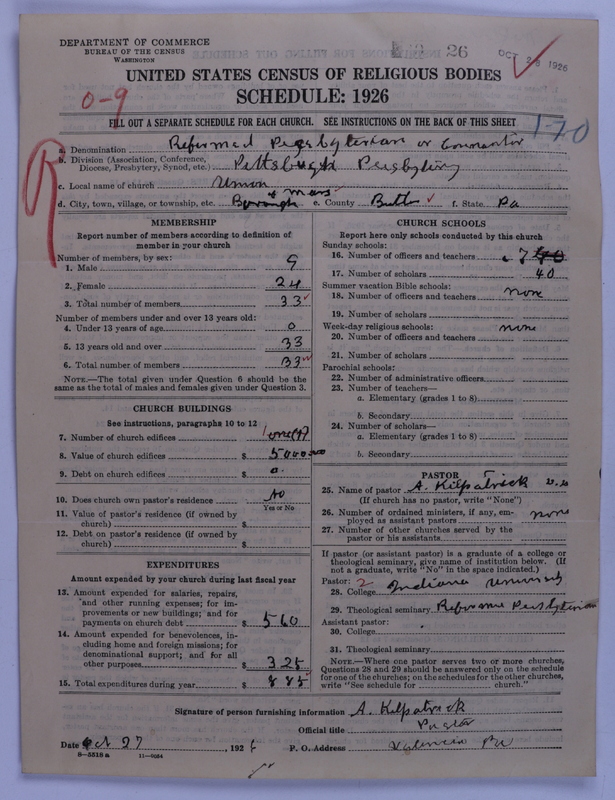 DEPARTMENT OF COMMERCE
BUREAU OF THE CENSUS
WASHINGTON
26
OCT 28 1926
UNITED STATES CENSUS OF RELIGIOUS BODIES
SCHEDULE: 1926
0-9
FILL OUT A SEPARATE SCHEDULE FOR EACH CHURCH. SEE INSTRUCTIONS ON THE BACK OF THIS SHEET
170
R
a. Denomination Reformed Presbyterian or
b. Division (Association, Conference,
Diocese, Presbytery, Synod, etc.) Pittsburgh Presbytery
c. Local name of church Union
d. City, town, village, or township, etc. Borough of Mars e. County Butler f. State Pa
MEMBERSHIP
Report number of members according to definition of
member in your church
Number of members, by sex:
1. Male 9
2. Female 24
3. Total number of members 33
Number of members under and over 13 years old:
4. Under 13 years of age 0
5. 13 years old and over 33
6. Total number of members 33
NOTE.—The total given under Question 6 should be
the same as the total of males and females given under Question 3.
CHURCH BUILDINGS
See instructions, paragraphs 10 to 12
7. Number of church edifices 1 one(1)
8. Value of church edifices $ 5000.00
9. Debt on church edifices $ 0.
10. Does church own pastor's residence No
Yes or No
11. Value of pastor's residence (if owned by
church) $
12. Debt on pastor's residence (if owned by
church) $
EXPENDITURES
Amount expended by your church during last fiscal year
13. Amount expended for salaries, repairs,
and other running expenses; for im-
provements or new buildings; and for
payments on church debt $ 560
14. Amount expended for benevolences, in-
cluding home and foreign missions; for
denominational support; and for all
other purposes $ 325
15. Total expenditures during year $ 885
CHURCH SCHOOLS
Report here only schools conducted by this church
Sunday schools:
16. Number of officers and teachers 7
17. Number of scholars 40
Summer vacation Bible schools:
18. Number of officers and teachers none
19. Number of scholars
Week-day religious schools: none
20. Number of officers and teachers
21. Number of scholars
Parochial schools:
22. Number of administrative officers
23. Number of teachers—
a. Elementary (grades 1 to 8)
b. Secondary
24. Number of scholars—
a. Elementary (grades 1 to 8)
b. Secondary
PASTOR
25. Name of pastor A. Kilpatrick
(If church has no pastor, write "None")
26. Number of ordained ministers, if any, em-
ployed as assistant pastors none
27. Number of other churches served by the
pastor or his assistants
If pastor (or assistant pastor) is a graduate of a college or
theological seminary, give name of institution below. (If
not a graduate, write "No" in the space indicated.)
Pastor: 2
28. College Indiana University
29. Theological seminary Reformed Presbyterian
Assistant pastor:
30. College
31. Theological seminary
NOTE.—Where one pastor serves two or more churches,
Questions 28 and 29 should be answered only on the schedule
for one of the churches; on the schedules for the other churches,
write "See schedule for church."
Signature of person furnishing information A. Kilpatrick
Official title Pastor
Date Oct 27, 1926 P. O. Address Valencia Pa
8-5518 a 11-9054